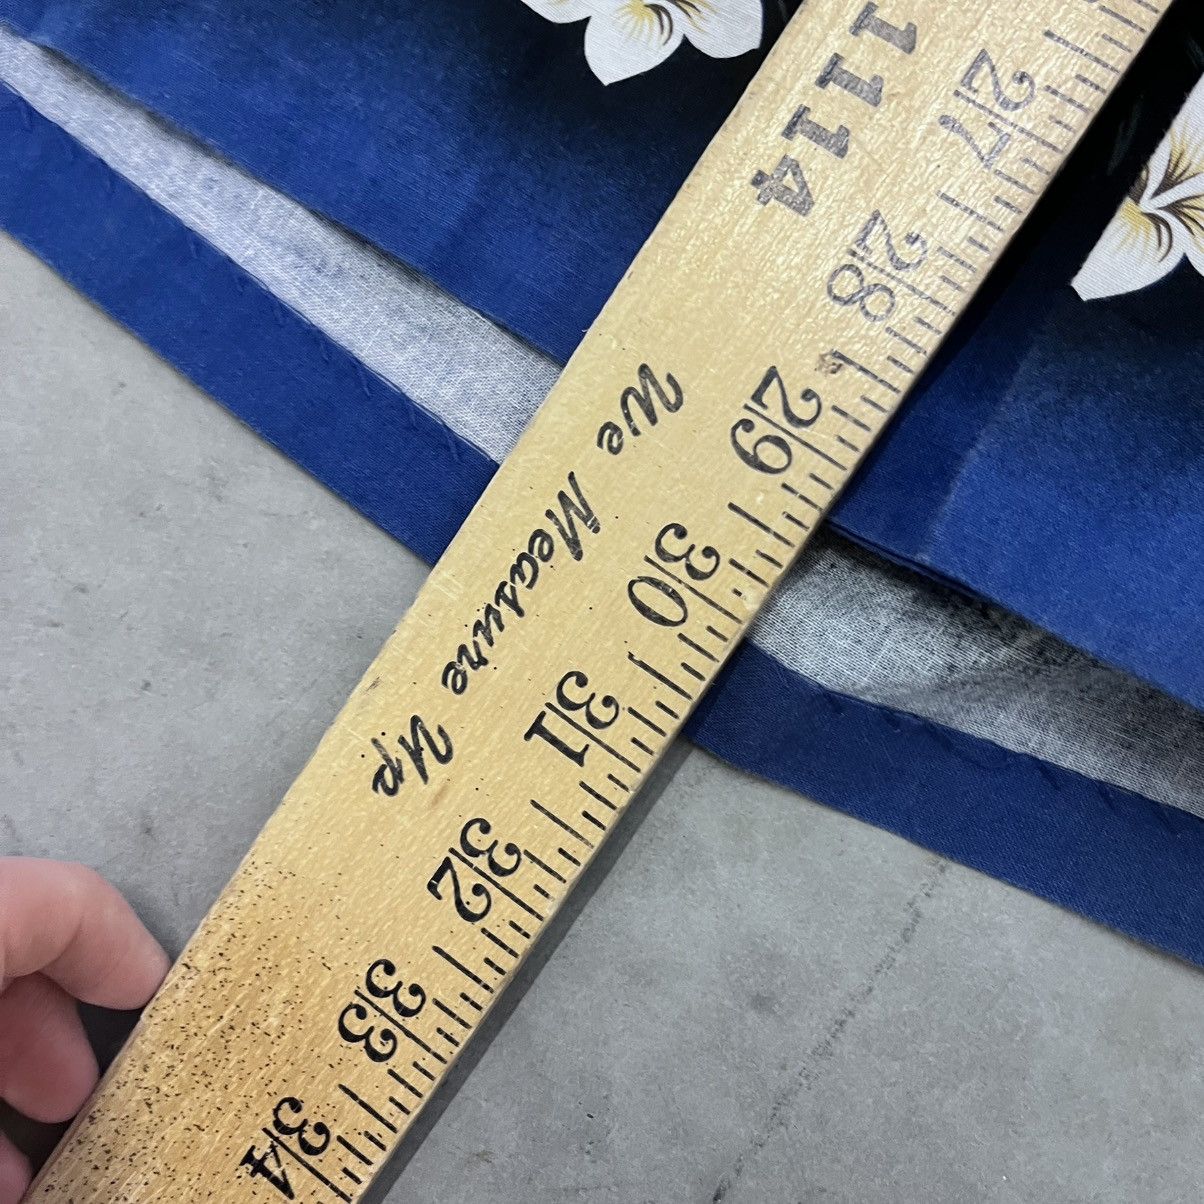 1114
We Measure Up
27
28
29
30
31
32
33
34